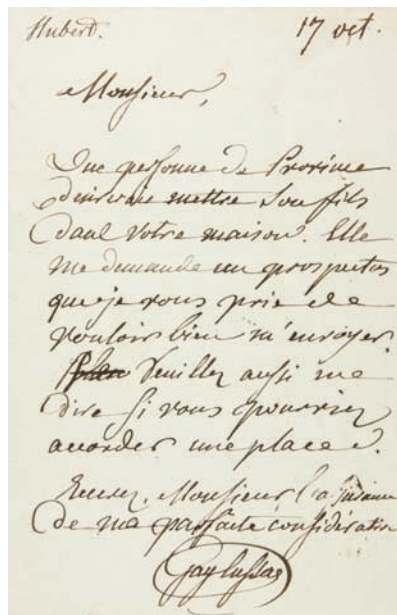 Hubert.
17 oct.
Monsieur,
Une personne de Province
désirerait mettre son fils
dans votre maison. Elle
me demande un prospectus
que je vous prie de
vouloir bien m'envoyer.
Veuillez aussi me
dire si vous pourriez
accorder une place.
Recevez, Monsieur l'assurance
de ma parfaite considération
Gay Lussac